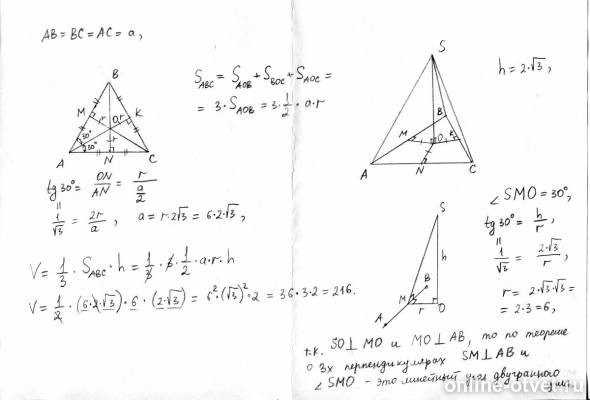 AB = BC = AC = a,
B
M
K
O
r
r
r
30°
30°
A
N
C
S_ABC = S_AOB + S_BOC + S_AOC =
= 3·S_AOB = 3·1/2·a·r
tg 30° = ON/AN = r/(a/2)
||
1/√3 = 2r/a, a = r·2√3 = 6·2·√3,
V = 1/3·S_ABC·h = 1/3·3·1/2·a·r·h
V = 1/2·(6·2·√3)·6·(2·√3) = 6²·(√3)²·2 = 36·3·2 = 216.
S
h = 2·√3,
B
M
O
K
A
N
C
S
h
B
M
r
O
A
∠SMO = 30°,
tg 30° = h/r,
||
1/√3 = 2√3/r,
r = 2·√3·√3 =
= 2·3 = 6,
т.к. SO⊥MO и MO⊥AB, то по теореме
о 3х перпендикулярах SM⊥AB и
∠SMO - это линейный угол двугранного
угла.
online-otvet.ru